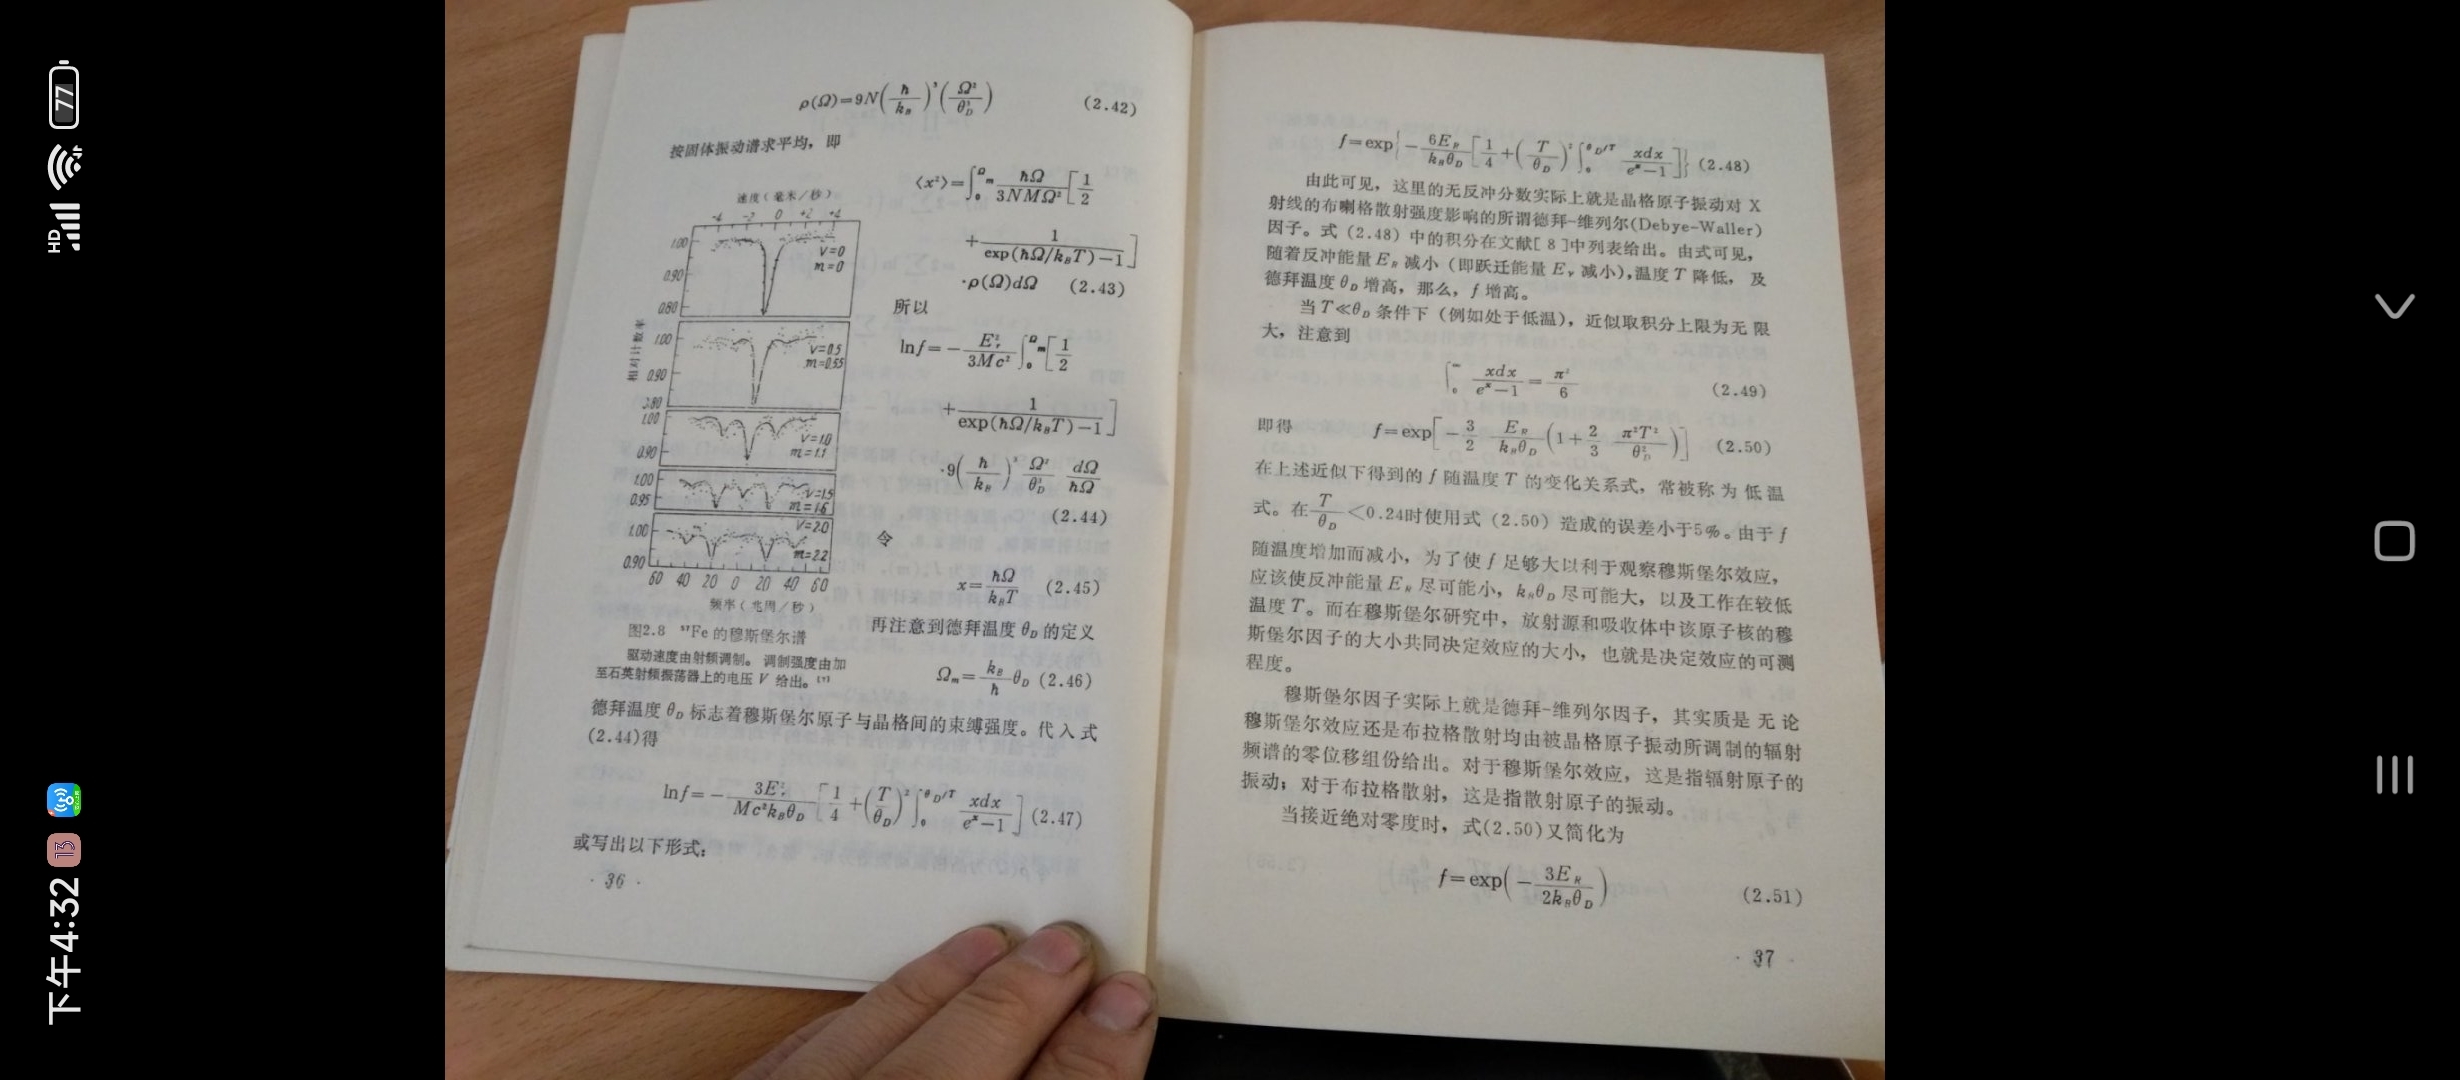 ρ(Ω)=9N(ħ/k_B)³(Ω²/θ_D³) (2.42)
按固体振动谱求平均，即
⟨x²⟩=∫₀^Ωm ħΩ/3NMΩ² [1/2
+1/(exp(ħΩ/k_BT)−1)]
·ρ(Ω)dΩ (2.43)
所以
lnf=−E_γ²/3Mc² ∫₀^Ωm [1/2
+1/(exp(ħΩ/k_BT)−1)]
·9(ħ/k_B)³ Ω²/θ_D³ dΩ/ħΩ
(2.44)
令
x=ħΩ/k_BT (2.45)
再注意到德拜温度 θ_D 的定义
Ω_m=k_B/ħ θ_D (2.46)
速度（毫米/秒）
-4 -2 0 +2 +4
相对计数率
1.00
0.90
0.80
V=0
m=0
1.00
0.90
V=0.5
m=0.55
1.00
0.90
V=1.0
m=1.1
1.00
0.95
V=1.5
m=1.6
1.00
0.90
V=2.0
m=2.2
60 40 20 0 20 40 60
频率（兆周/秒）
图2.8 ⁵⁷Fe 的穆斯堡尔谱
驱动速度由射频调制。调制强度由加
至石英射频振荡器上的电压 V 给出。[7]
德拜温度 θ_D 标志着穆斯堡尔原子与晶格间的束缚强度。代入式
(2.44)得
lnf=−3E_γ²/Mc²k_Bθ_D [1/4+(T/θ_D)²∫₀^θD/T xdx/(eˣ−1)] (2.47)
或写出以下形式：
· 36 ·
f=exp{−6E_R/k_Bθ_D [1/4+(T/θ_D)²∫₀^θD/T xdx/(eˣ−1)]} (2.48)
由此可见，这里的无反冲分数实际上就是晶格原子振动对 X
射线的布喇格散射强度影响的所谓德拜-维列尔(Debye-Waller)
因子。式 (2.48) 中的积分在文献[8]中列表给出。由式可见，
随着反冲能量 E_R 减小（即跃迁能量 E_γ 减小），温度 T 降低，及
德拜温度 θ_D 增高，那么，f 增高。
当 T≪θ_D 条件下（例如处于低温），近似取积分上限为无限
大，注意到
∫₀^∞ xdx/(eˣ−1)=π²/6 (2.49)
即得 f=exp[−3/2 E_R/k_Bθ_D (1+2/3 π²T²/θ_D²)] (2.50)
在上述近似下得到的 f 随温度 T 的变化关系式，常被称为低温
式。在 T/θ_D <0.24时使用式 (2.50) 造成的误差小于5%。由于 f
随温度增加而减小，为了使 f 足够大以利于观察穆斯堡尔效应，
应该使反冲能量 E_R 尽可能小，k_Bθ_D 尽可能大，以及工作在较低
温度 T。而在穆斯堡尔研究中，放射源和吸收体中该原子核的穆
斯堡尔因子的大小共同决定效应的大小，也就是决定效应的可测
程度。
穆斯堡尔因子实际上就是德拜-维列尔因子，其实质是无论
穆斯堡尔效应还是布拉格散射均由被晶格原子振动所调制的辐射
频谱的零位移组份给出。对于穆斯堡尔效应，这是指辐射原子的
振动；对于布拉格散射，这是指散射原子的振动。
当接近绝对零度时，式(2.50)又简化为
f=exp(−3E_R/2k_Bθ_D) (2.51)
· 37 ·
下午4:32
13
HD
77